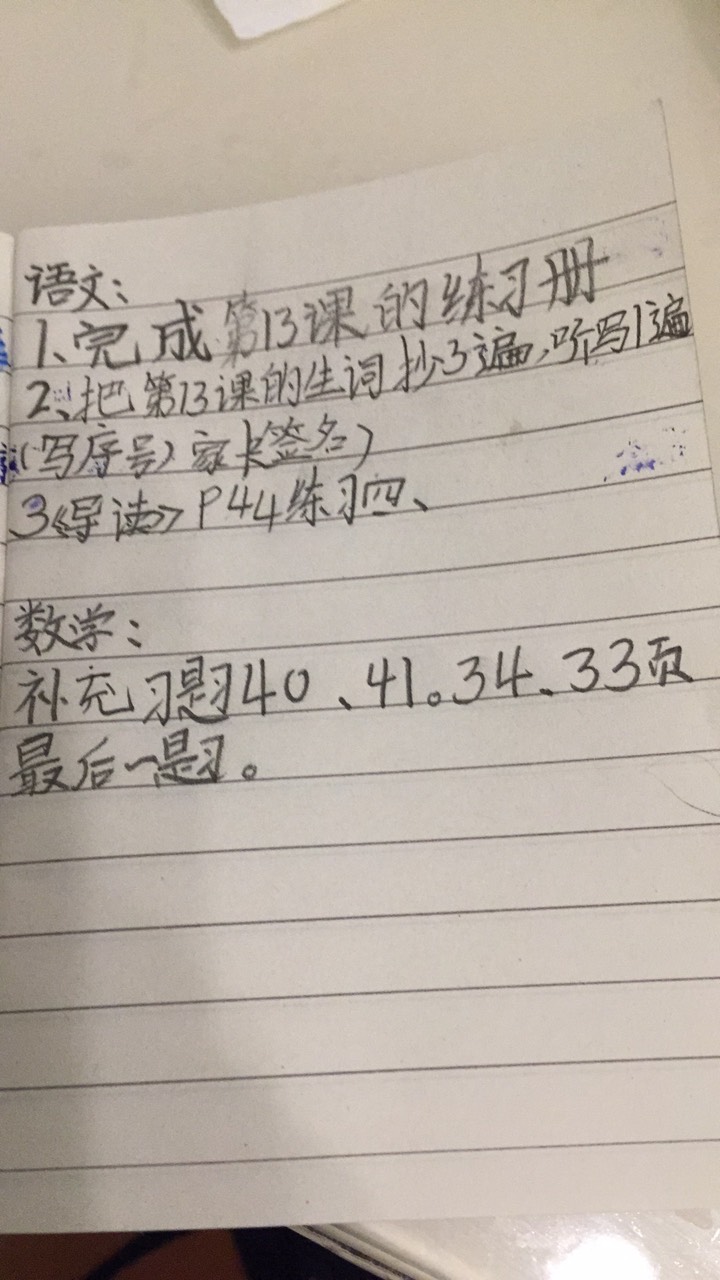 语文:
1、完成第13课的练习册
2、把第13课的生词抄3遍,听写1遍
(写序号)家长签名)
3《导读》P44练习四、
数学:
补充习题40、41。34、33页
最后一题。